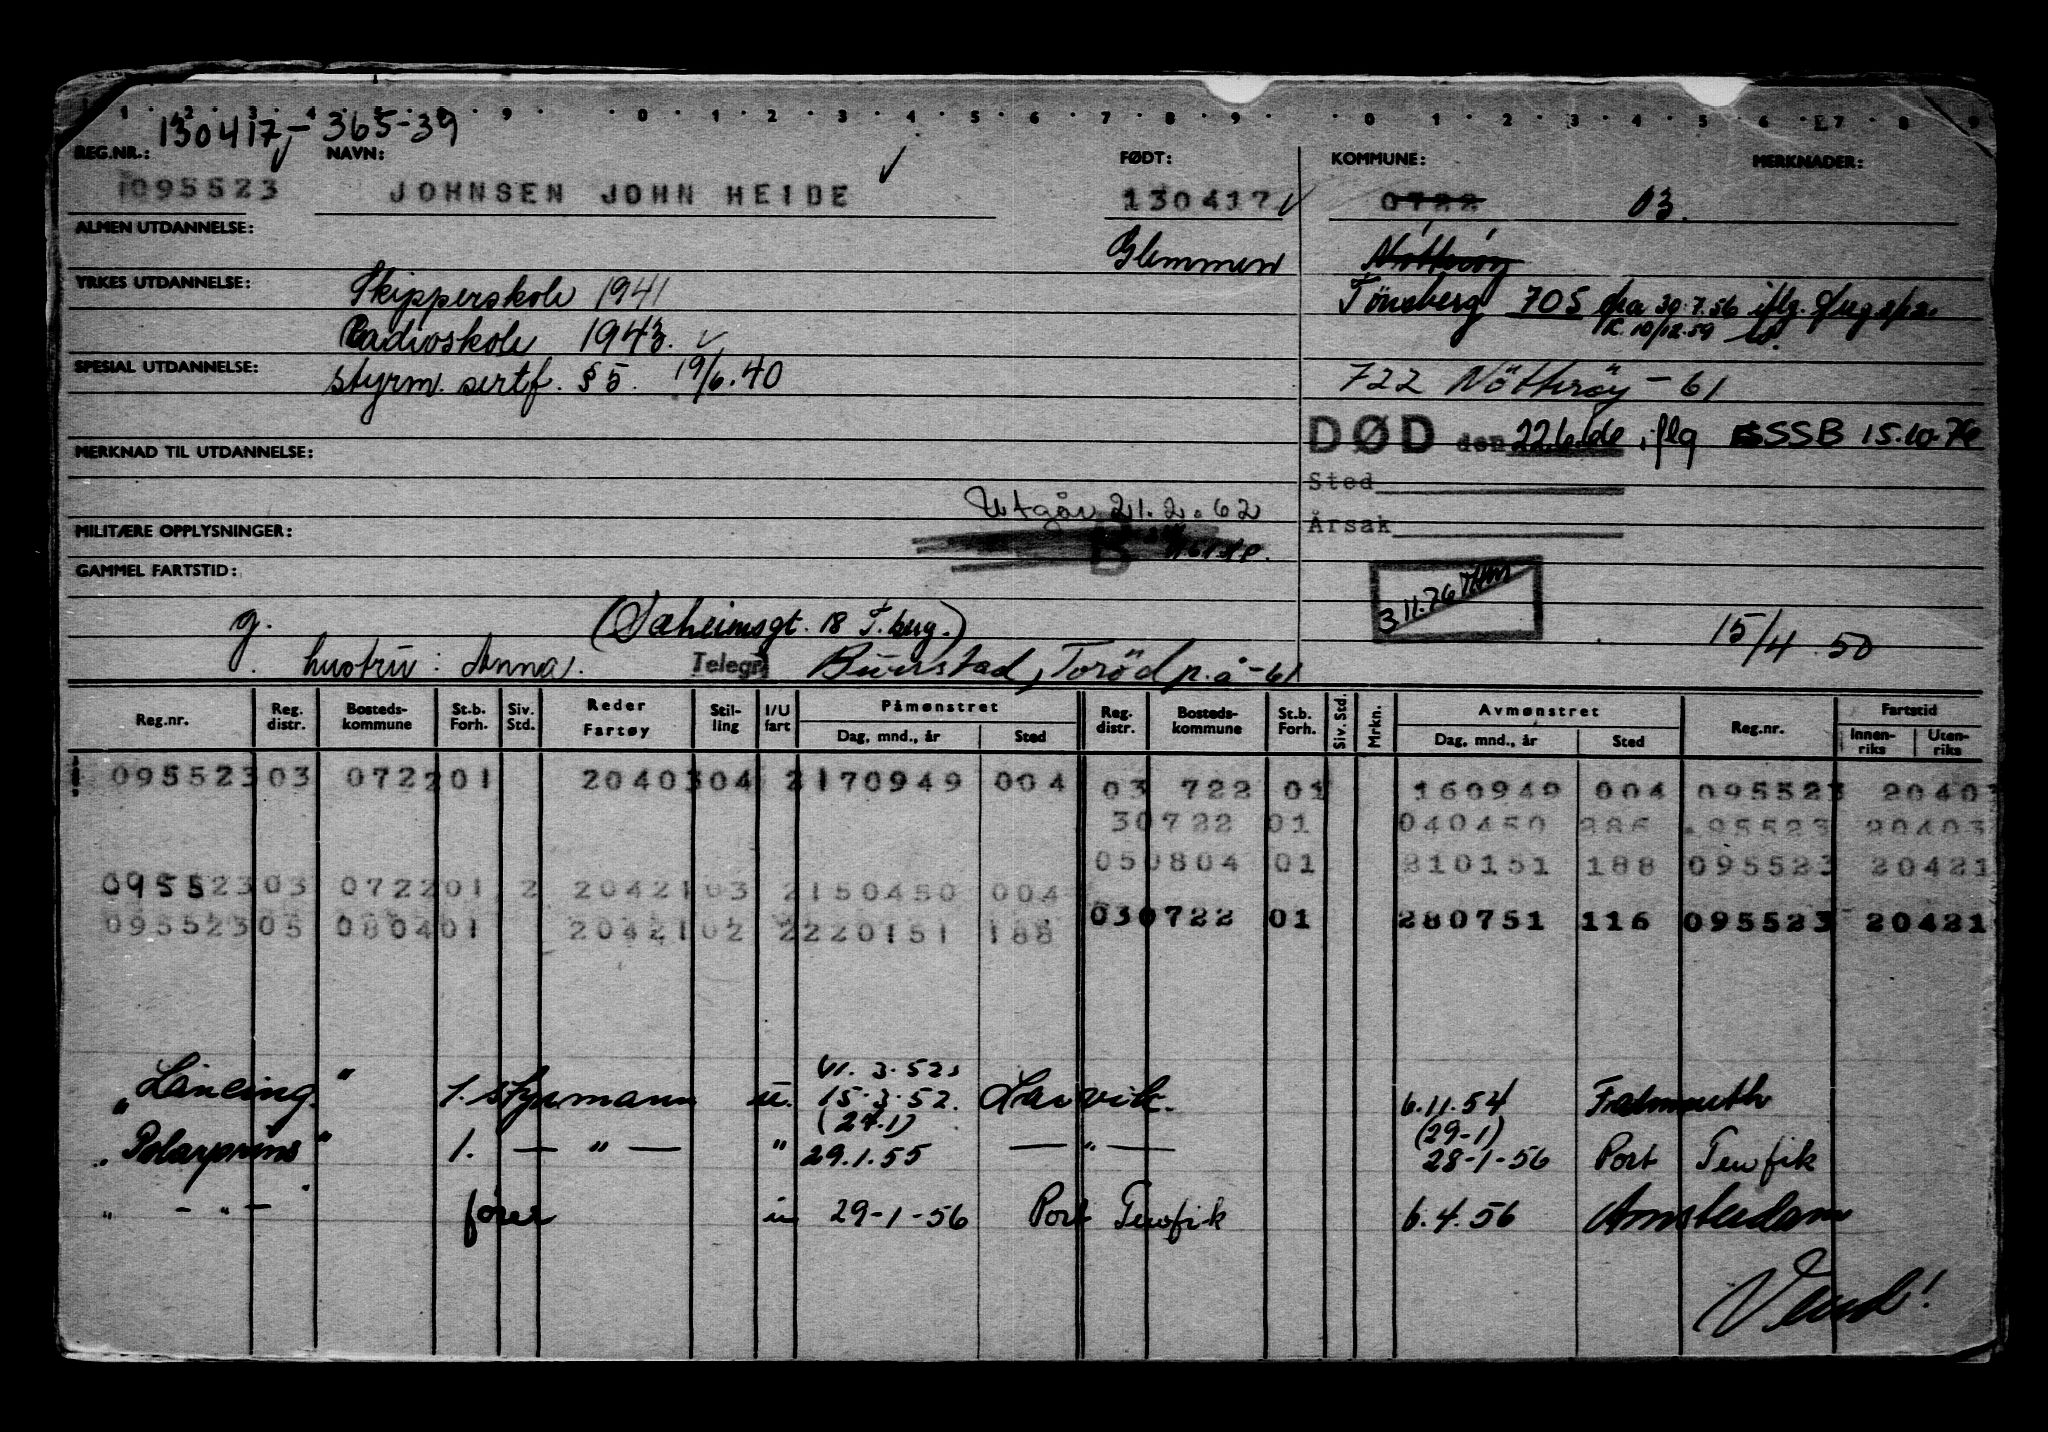 1 2 3 4 5 6 7 8 9 0 1 2 3 4 5 6 7 8 9 0 1 2 3 4 5 6 7 8 9
130417 - 365-39
REG.NR.: NAVN: FØDT: KOMMUNE: MERKNADER:
095523 JOHNSEN JOHN HEIDE 130417 0722 03.
ALMEN UTDANNELSE: Glemmen Nötteröy
YRKES UTDANNELSE: Skipperskole 1941 Tönsberg 705 fra 30.7.56 iflg.
Radioskole 1943. K. 10/12.59
SPESIAL UTDANNELSE: styrm. sertf. § 5. 19/6.40 722 Nötteröy - 61
MERKNAD TIL UTDANNELSE: DØD den 22.6.66 iflg SSB 15.10.76
Sted
Utgår 21.2.62
MILITÆRE OPPLYSNINGER: Årsak
GAMMEL FARTSTID: 3 11.76
g. (Sæheimsgt. 18 T.berg.) 15/4 50
hustru: Anna. Telegr. Buerstad, Toröd p.å -61
Reg.nr. Reg. distr. Bosteds-kommune St.b. Forh. Siv. Std. Reder Fartøy Stil-ling I/U fart Påmønstret Dag, mnd., år Sted Reg. distr. Bosteds-kommune St.b. Forh. Siv. Std. Mrkn. Avmønstret Dag, mnd., år Sted Reg.nr. Fartstid Innen-riks Uten-riks
095523 03 0722 01 20403 04 2 170949 004 03 722 01 160949 004 095523 20403
3 0722 01 040450 286 95523 20403
05 0804 01 210151 188 095523 20421
095523 03 0722 01 2 20421 03 2 150450 004
03 0722 01 280751 116 095523 20421
095523 05 0804 01 20421 02 2 220151 188
11.3.52
"Lancing" 1. styrmann u. 15.3.52. Larvik. 6.11.54 Falmouth
(27.1) (29-1)
"Polarprins" 1. — " — " 29.1.55 — " — 28-1-56 Port Tewfik
" - " - fører u 29-1-56 Port Tewfik 6.4.56 Amsterdam
Vend!